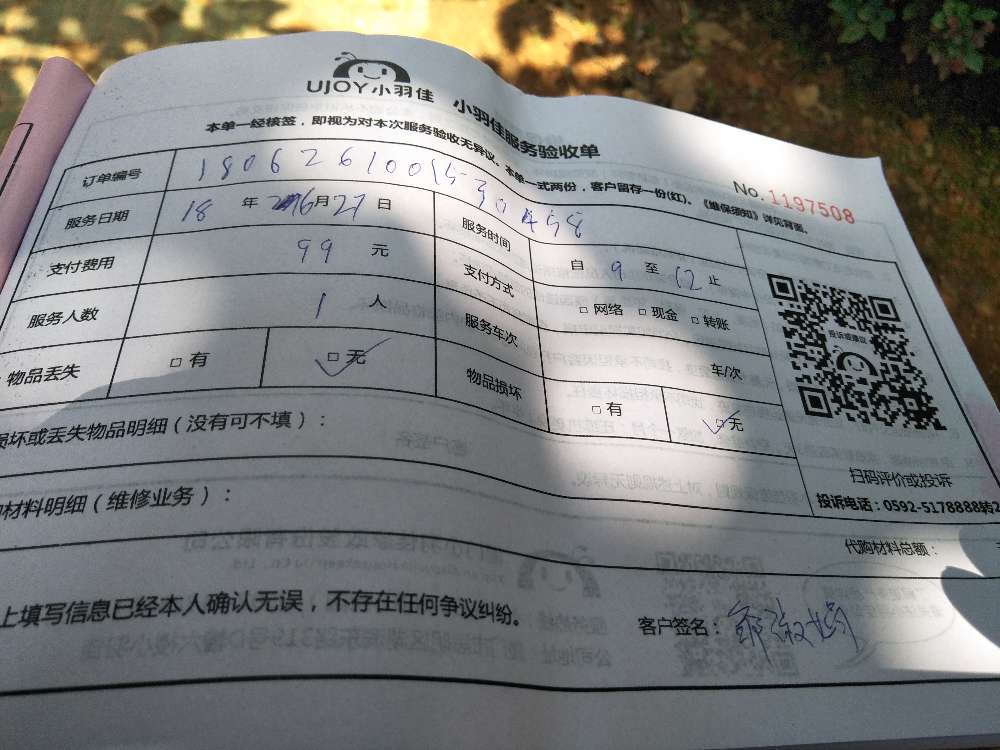 UJOY小羽佳 小羽佳服务验收单
本单一经核签，即视为对本次服务验收无异议。本单一式两份，客户留存一份(红)。《维保须知》详见背面。
No. 1197508
订单编号 180626100153030458
服务日期 18 年 6月 27 日 服务时间 自 9 至 12 止
支付费用 99 元 支付方式 □ 网络 □ 现金 □ 转账
服务人数 1 人 服务车次 车/次
物品丢失 □ 有 □ 无 物品损坏 □ 有 □ 无
投诉或建议
扫码评价或投诉
投诉电话：0592-5178888转2
损坏或丢失物品明细（没有可不填）：
材料明细（维修业务）：
代购材料总额：
上填写信息已经本人确认无误，不存在任何争议纠纷。
客户签名：